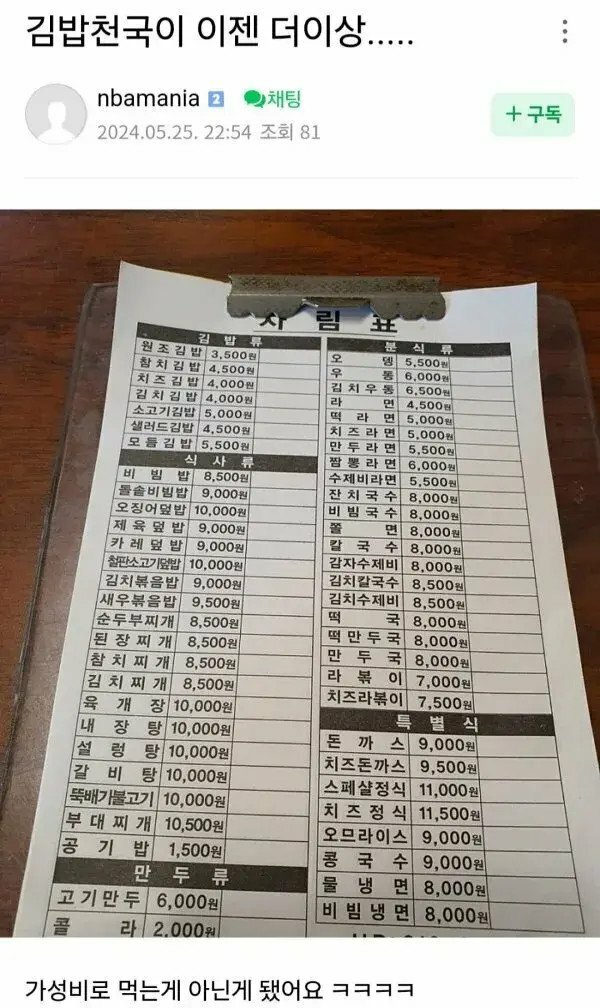 김밥천국이 이젠 더이상.....
nbamania 2 채팅
2024.05.25. 22:54 조회 81
+ 구독
차 림 표
김 밥 류
원조김밥 3,500원
참치김밥 4,500원
치즈김밥 4,000원
김치김밥 4,000원
소고기김밥 5,000원
샐러드김밥 4,500원
모듬김밥 5,500원
식 사 류
비빔밥 8,500원
돌솥비빔밥 9,000원
오징어덮밥 10,000원
제육덮밥 9,000원
카레덮밥 9,000원
철판소고기덮밥 10,000원
김치볶음밥 9,000원
새우볶음밥 9,500원
순두부찌개 8,500원
된장찌개 8,500원
참치찌개 8,500원
김치찌개 8,500원
육개장 10,000원
내장탕 10,000원
설렁탕 10,000원
갈비탕 10,000원
뚝배기불고기 10,000원
부대찌개 10,500원
공기밥 1,500원
만 두 류
고기만두 6,000원
콜라 2,000원
분 식 류
오뎅 5,500원
우동 6,000원
김치우동 6,500원
라면 4,500원
떡라면 5,000원
치즈라면 5,000원
만두라면 5,500원
짬뽕라면 6,000원
수제비라면 5,500원
잔치국수 8,000원
비빔국수 8,000원
쫄면 8,000원
칼국수 8,000원
감자수제비 8,000원
김치칼국수 8,500원
김치수제비 8,500원
떡국 8,000원
떡만두국 8,000원
만두국 8,000원
라볶이 7,000원
치즈라볶이 7,500원
특 별 식
돈까스 9,000원
치즈돈까스 9,500원
스페샬정식 11,000원
치즈정식 11,500원
오므라이스 9,000원
콩국수 9,000원
물냉면 8,000원
비빔냉면 8,000원
가성비로 먹는게 아닌게 됐어요 ㅋㅋㅋㅋ